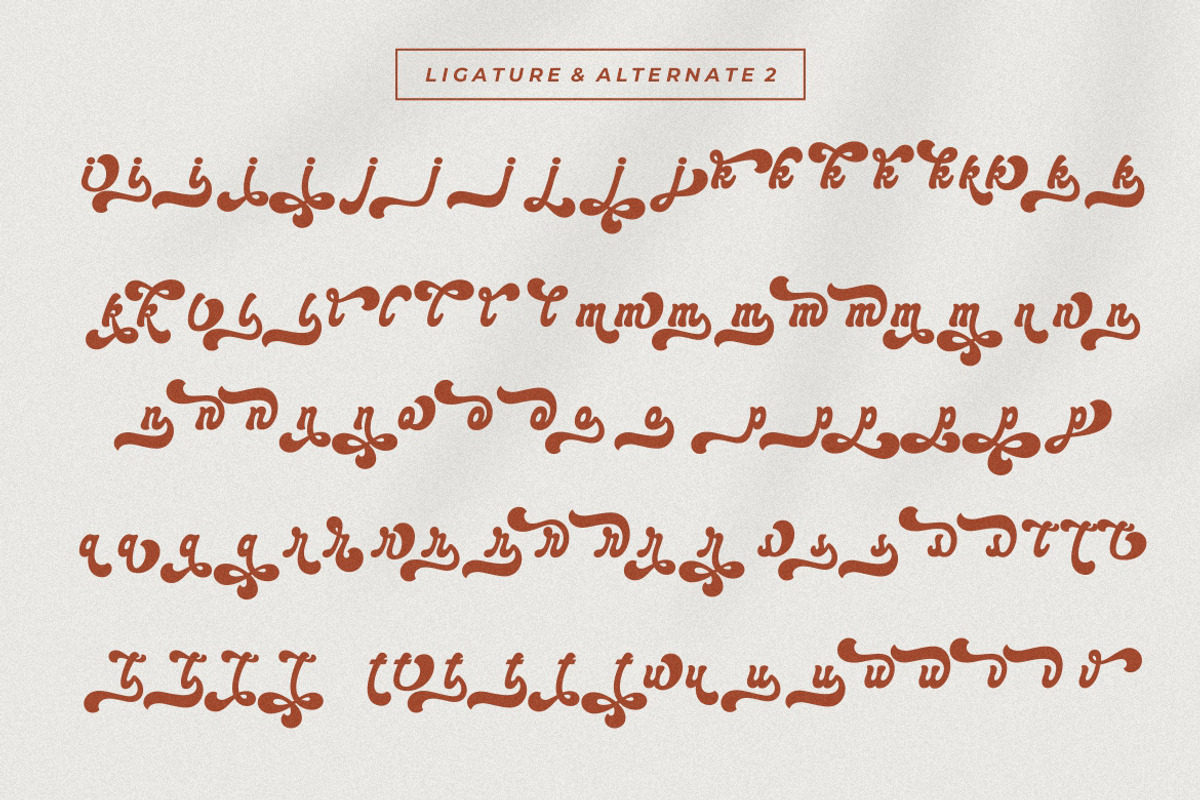 LIGATURE & ALTERNATE 2
i i i i i j j j j j j k k k k k k k k k
k k l l l l l l l l m m m m m m m m n n n
n n n n n o o o o o p p p p p p
q q q q r r r r r r r r r s s s s s t t t
t t t t t t t t t t u u u u u u v v v